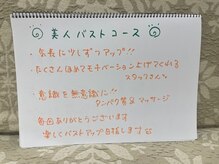 美人バストコース
・気長に少しずつアップ!!
・たくさんほめてモチベーション上げてくれる
スタッフさん
・意識を無意識に!!
タンパク質&マッサージ
毎回ありがとうございます
楽しくバストアップ目指します